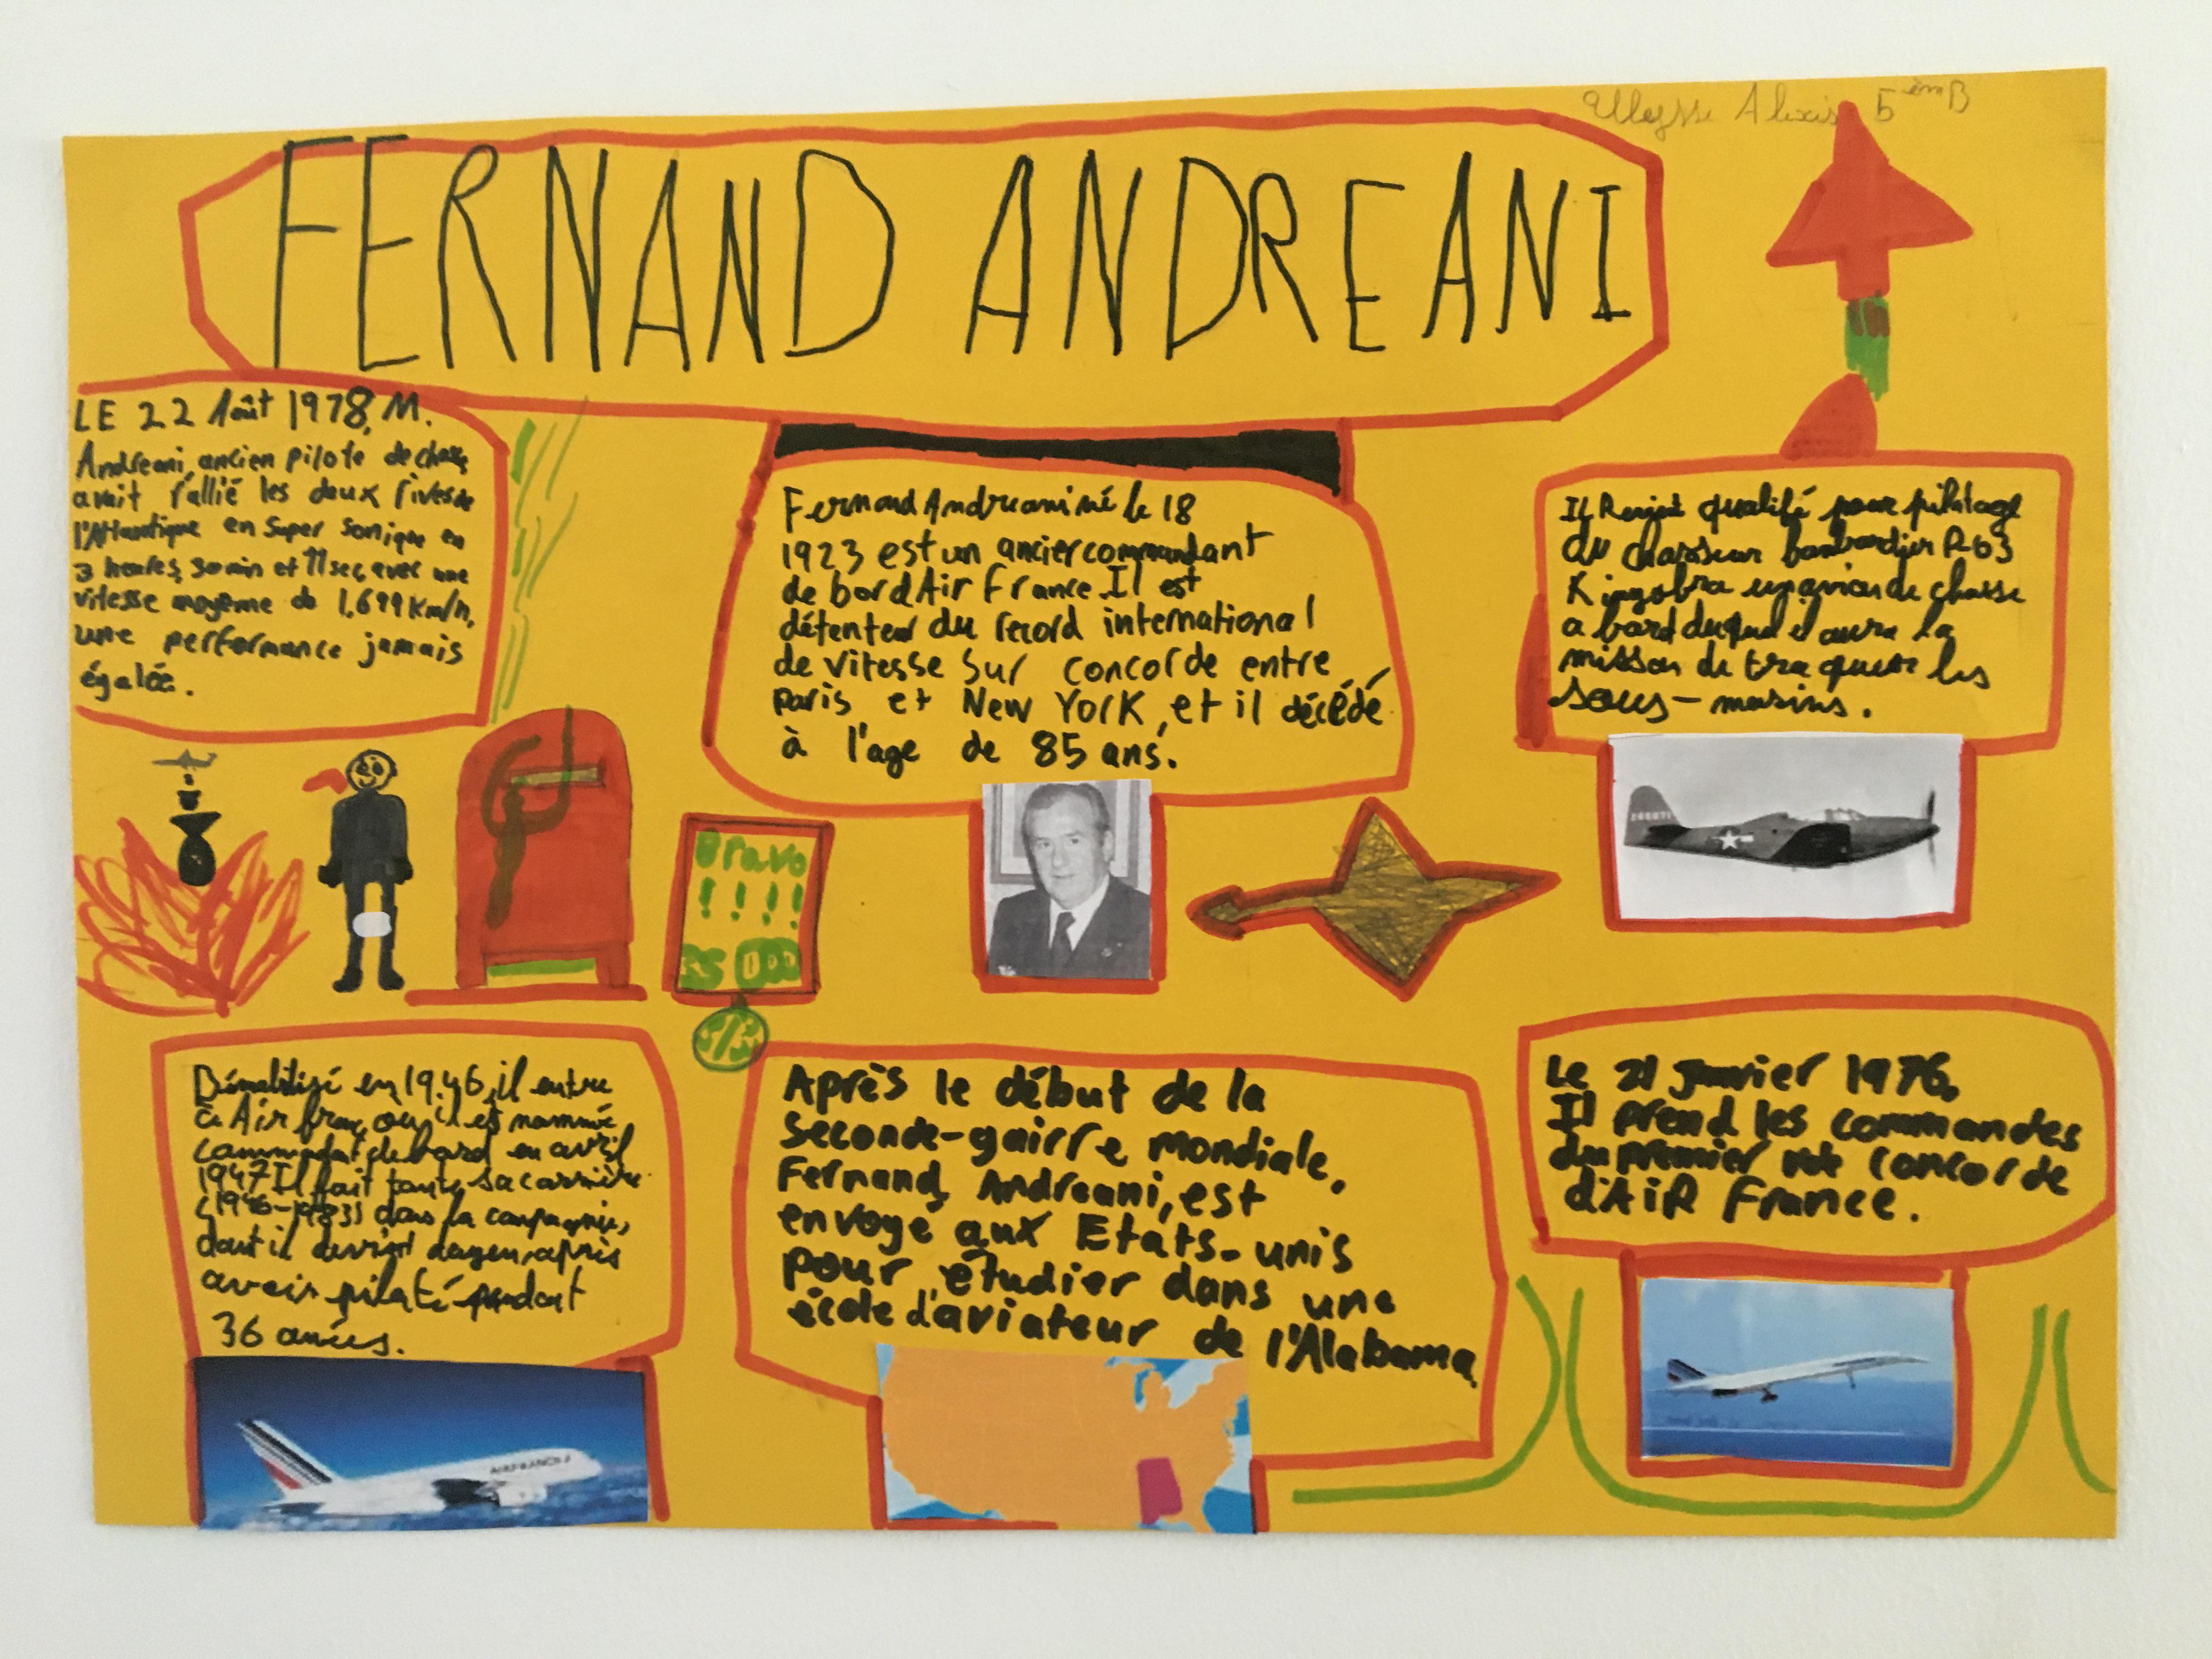 Ulysse Alexis 5 èm B
FERNAND ANDREANI
LE 22 Août 1978, M.
Andreani, ancien pilote de chasse
avait rallié les deux rives de
l'Atlantique en Super sonique en
3 heures, 30 min et 11 sec, avec une
vitesse moyenne de 1,699 Km/h,
une performance jamais
égalée.
Fernand Andreani né le 18
1923 est un ancier commandant
de bord Air France. Il est
détenteur du record international
de vitesse Sur concorde entre
paris et New York, et il décédé
à l'age de 85 ans.
Il qualifé pour pilotage
du chasseur bombardier P-63
Kingobra un avion de chasse
a bord duquel il aura la
mission de traquer les
sous-marins.
Bravo
!!!!
35 000
Démobilisé en 1946, il entre
à Air où il est nommé
commandant de bord en avril
1947 Il fait toute sa carrière
(1946-1983) dans la compagnie,
dont il devint doyen, après
avoir piloté pendant
36 années.
AIRFRANCE
Après le début de la
Seconde-gairre mondiale,
Fernand Andreani, est
envoyé aux Etats-unis
pour étudier dans une
école d'aviateur de l'Alabama
Le 21 Janvier 1976,
Il prend les commandes
du premier concorde
d'AiR France.